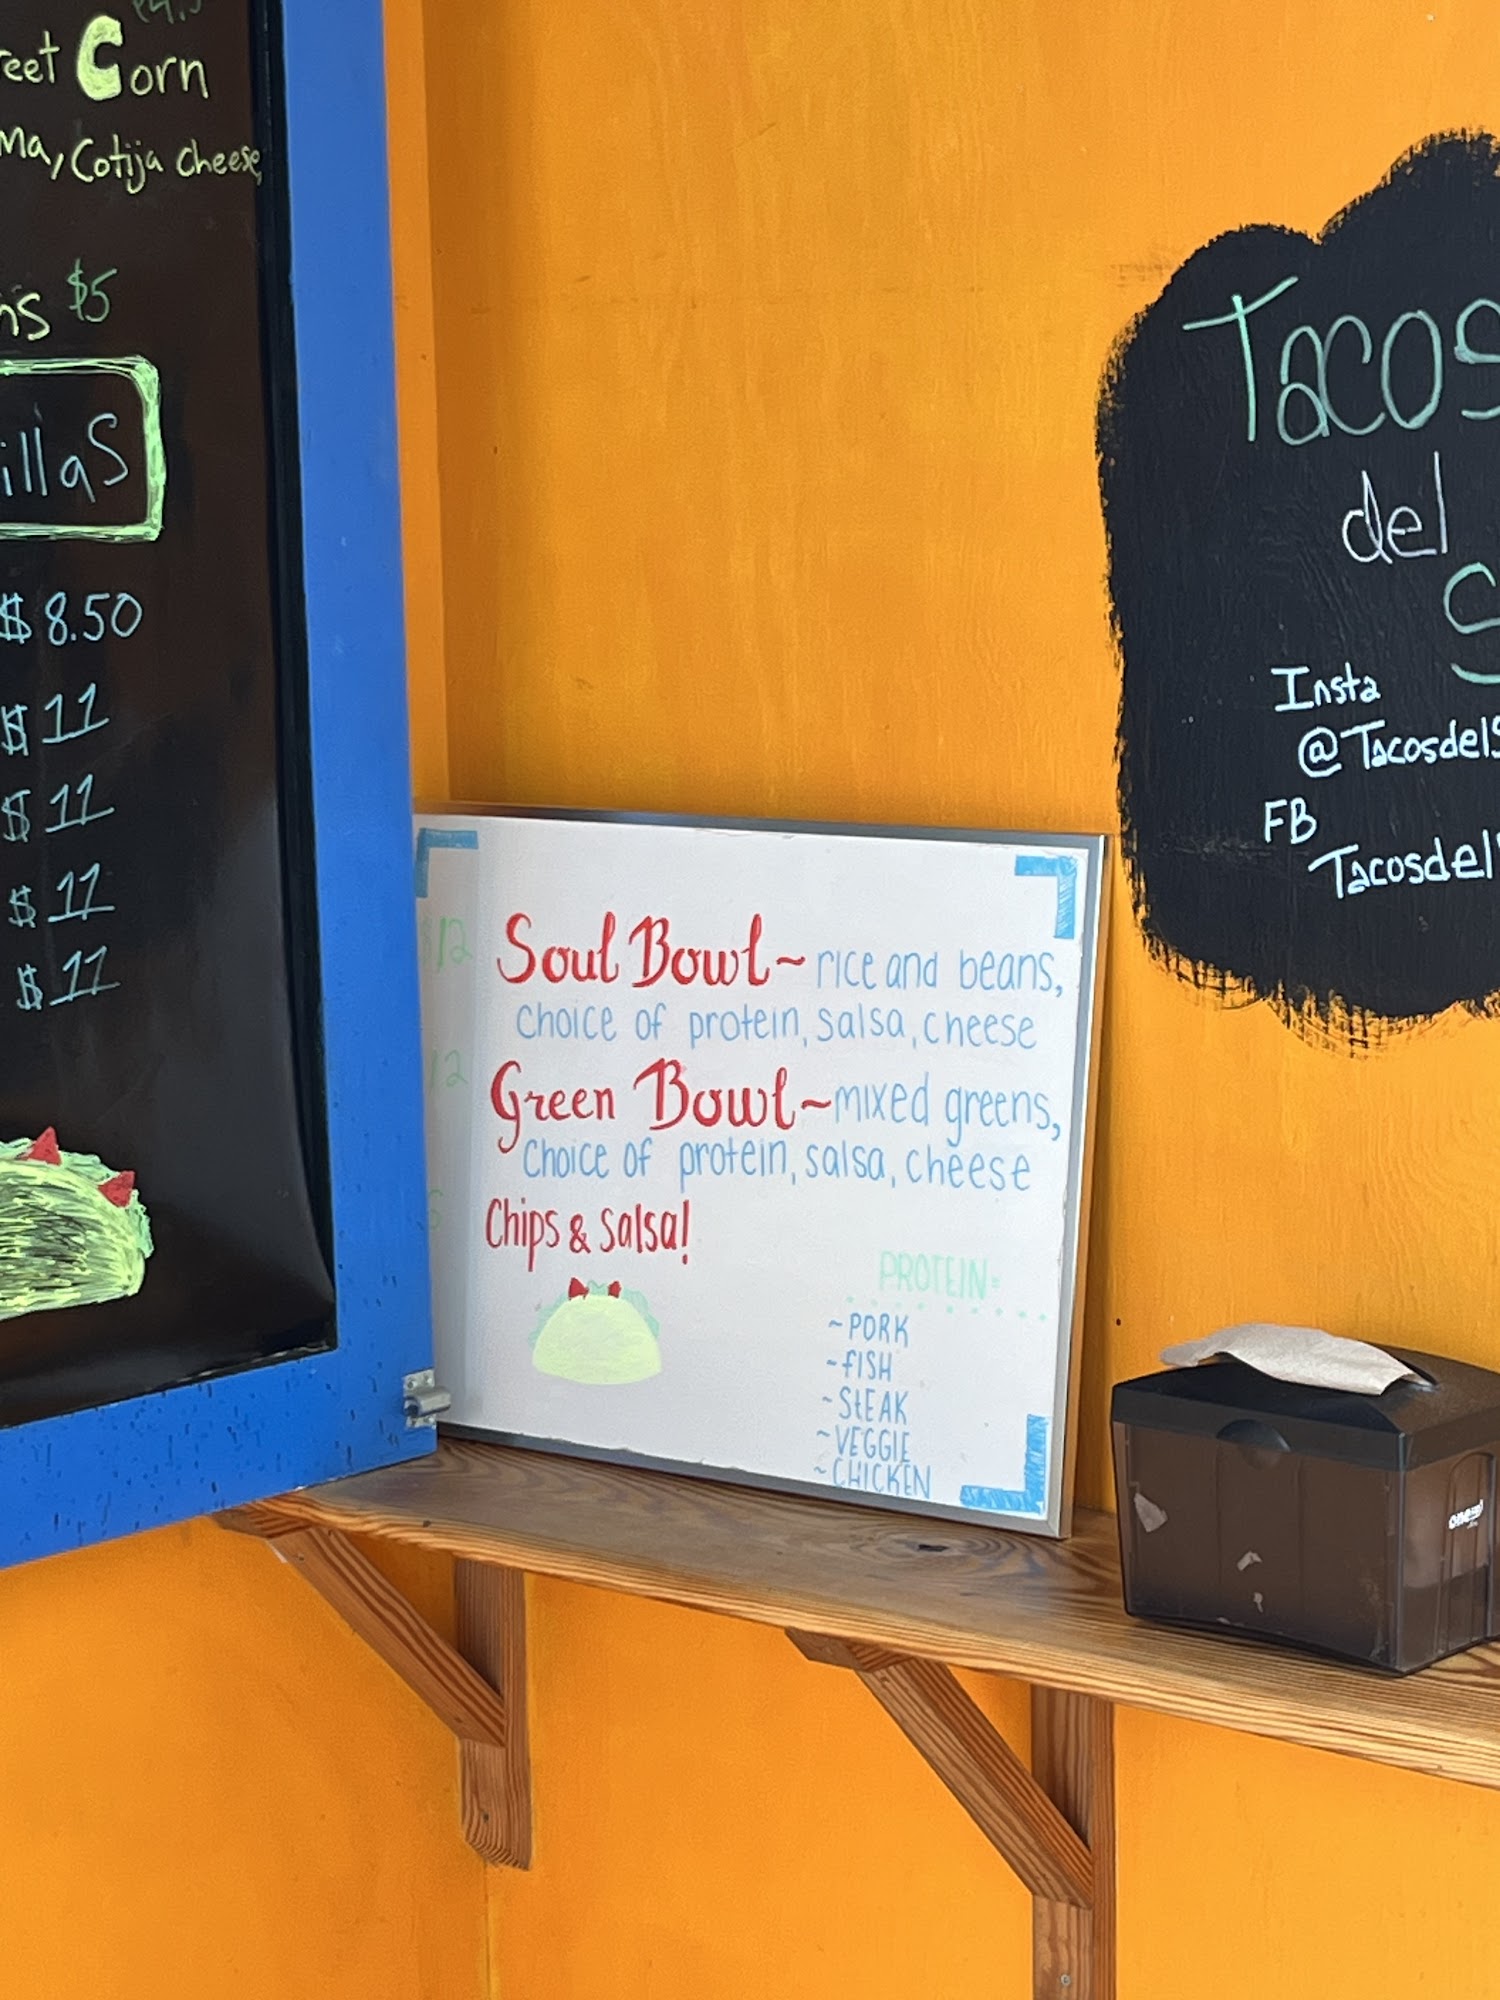 Corn
Cotija cheese,
$5
$8.50
$11
$11
$11
$11
Soul Bowl~ rice and beans,
choice of protein, salsa, cheese
Green Bowl~ mixed greens,
choice of protein, salsa, cheese
Chips & Salsa!
PROTEIN:
~PORK
~FISH
~STEAK
~VEGGIE
~CHICKEN
Tacos
del
Insta
FB